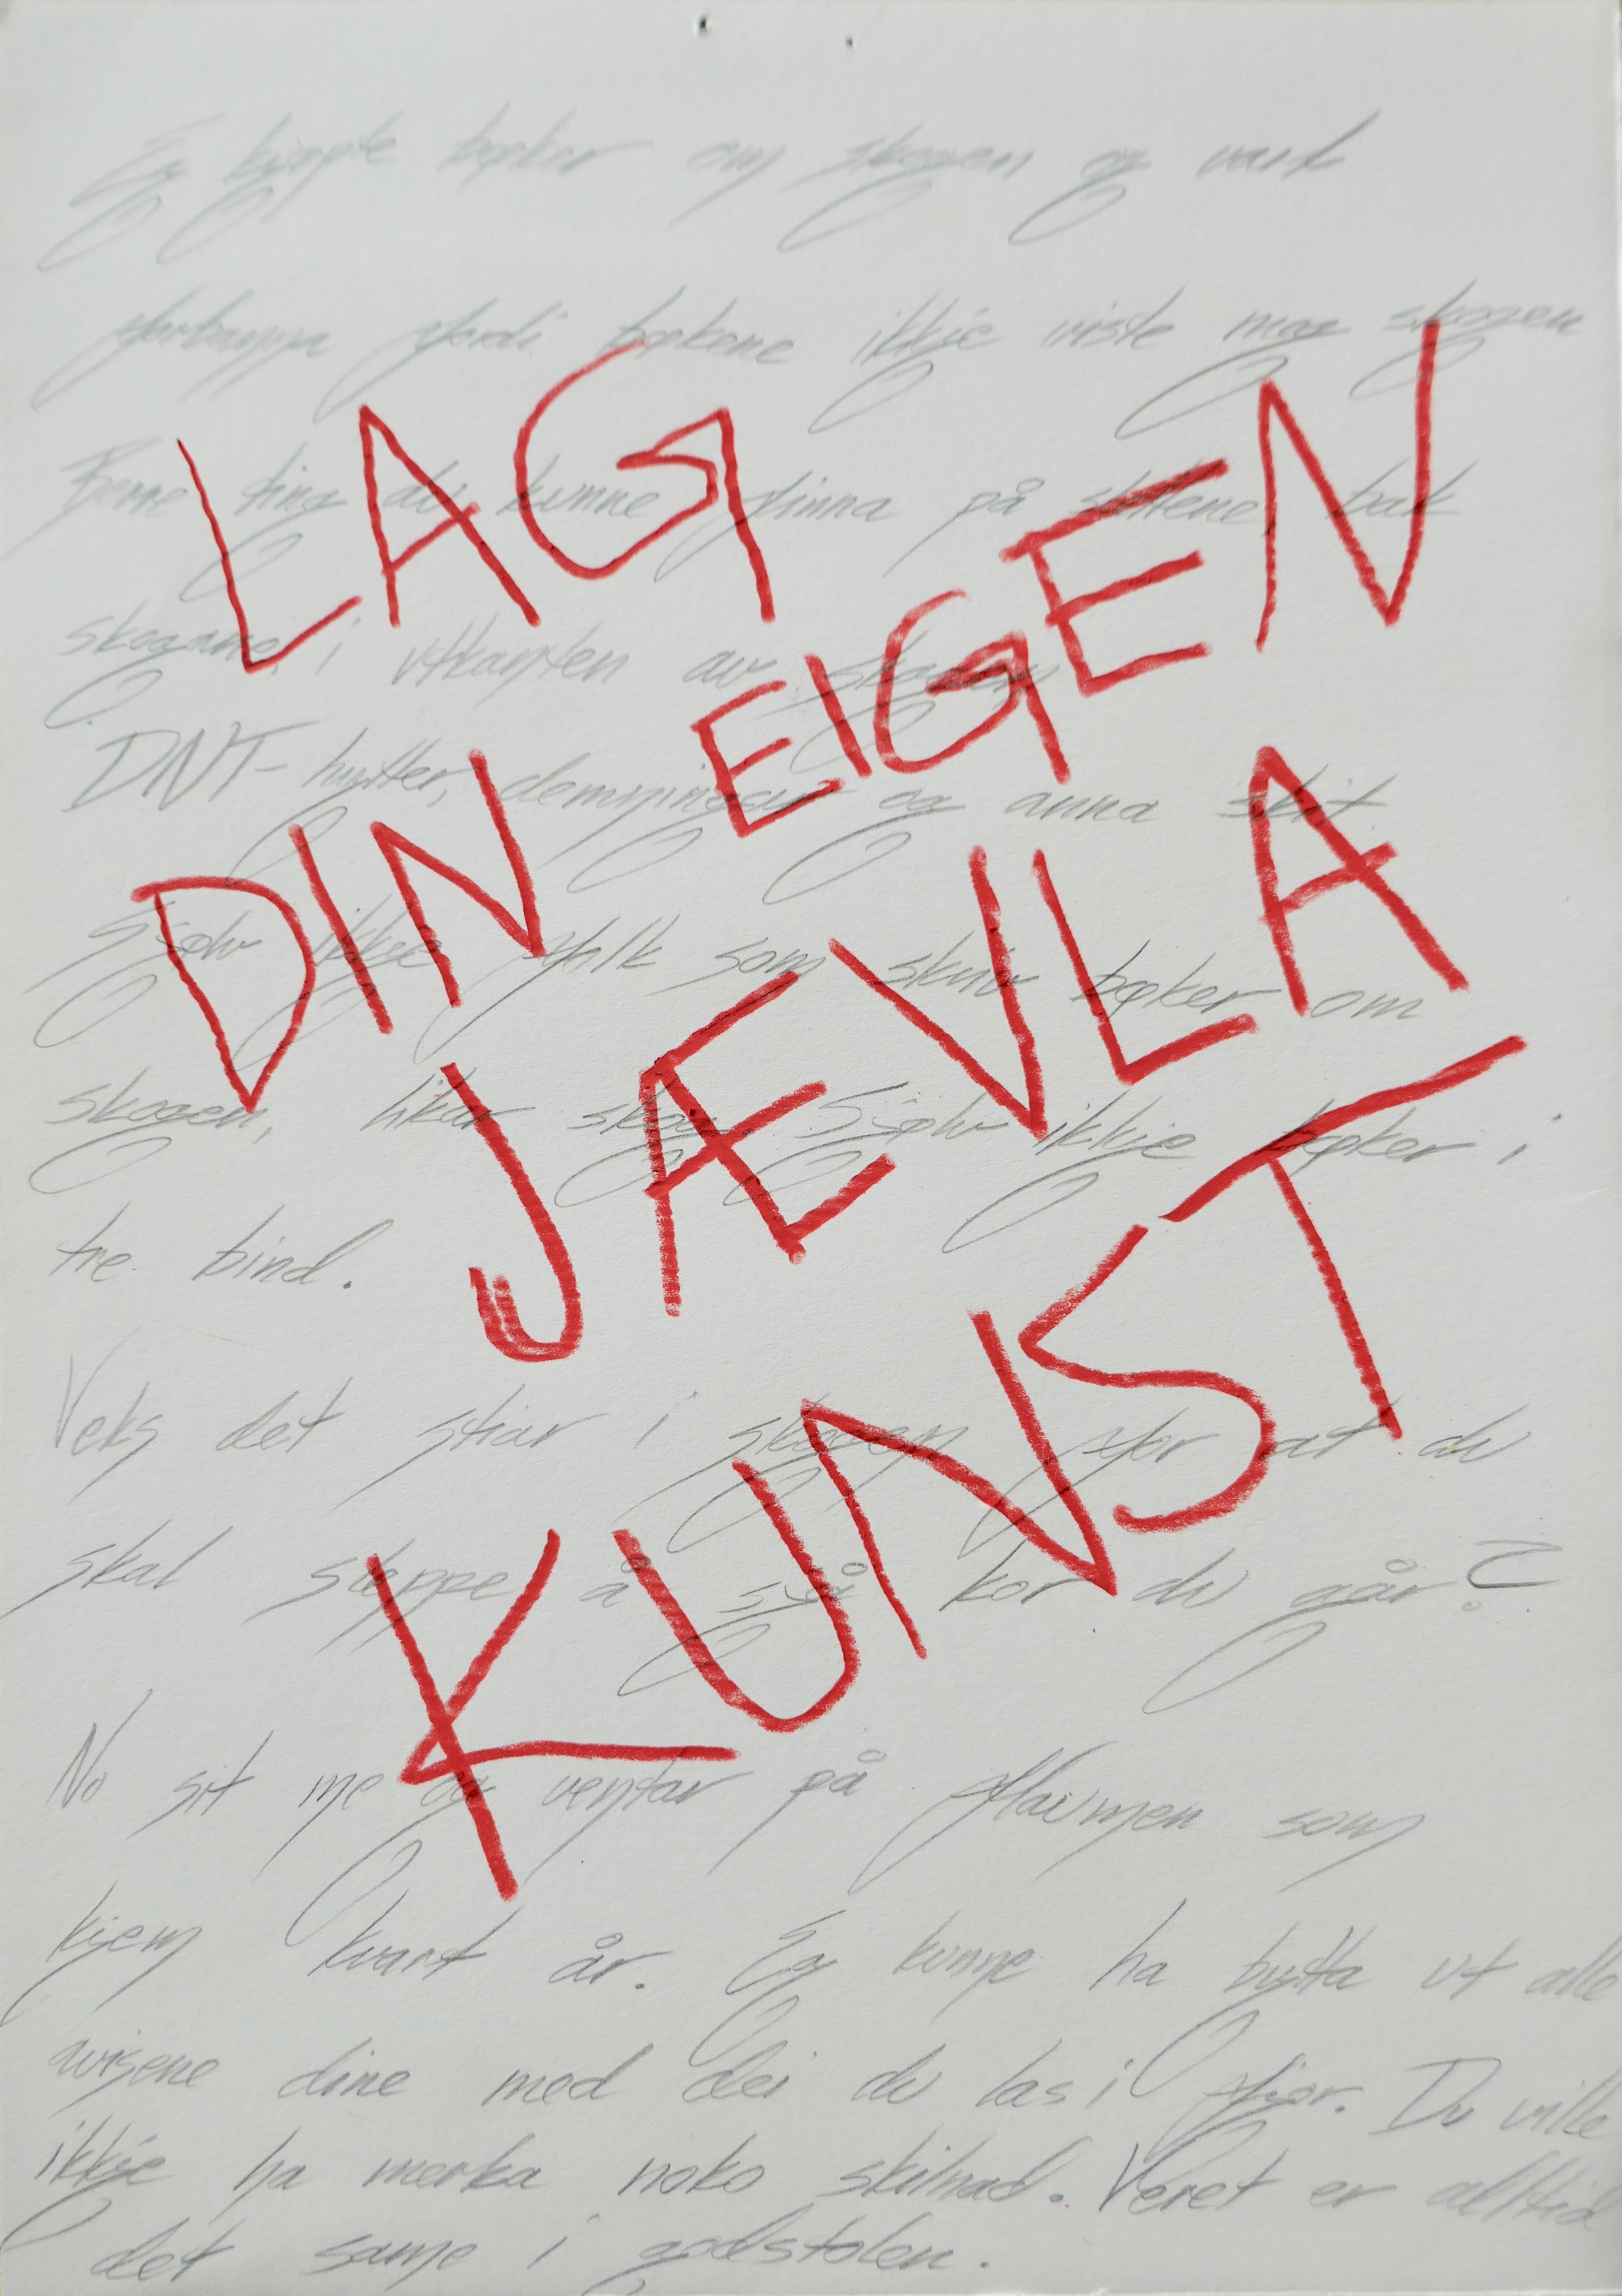 Eg kjøpte bøker om skogen og vart
forbanna fordi bøkene ikkje viste meg skogen
Berre ting du kunne finna på stiene bak
skogane, i utkanten av skogen
DNT-hytter, demningar og anna skit
Sjølv ikkje folk som skriv bøker om
skogen, likar skog. Sjølv ikkje bøker i
tre bind.
Veks det stiar i skogen for at du
skal sleppe å sjå kor du går?
No sit me og ventar på flaumen som
kjem kvart år. Eg kunne ha bytta ut alle
avisene dine med dei du las i fjor. Du ville
ikkje ha merka noko skilnad. Veret er alltid
det same i godstolen.
LAG
DIN EIGEN
JÆVLA
KUNST